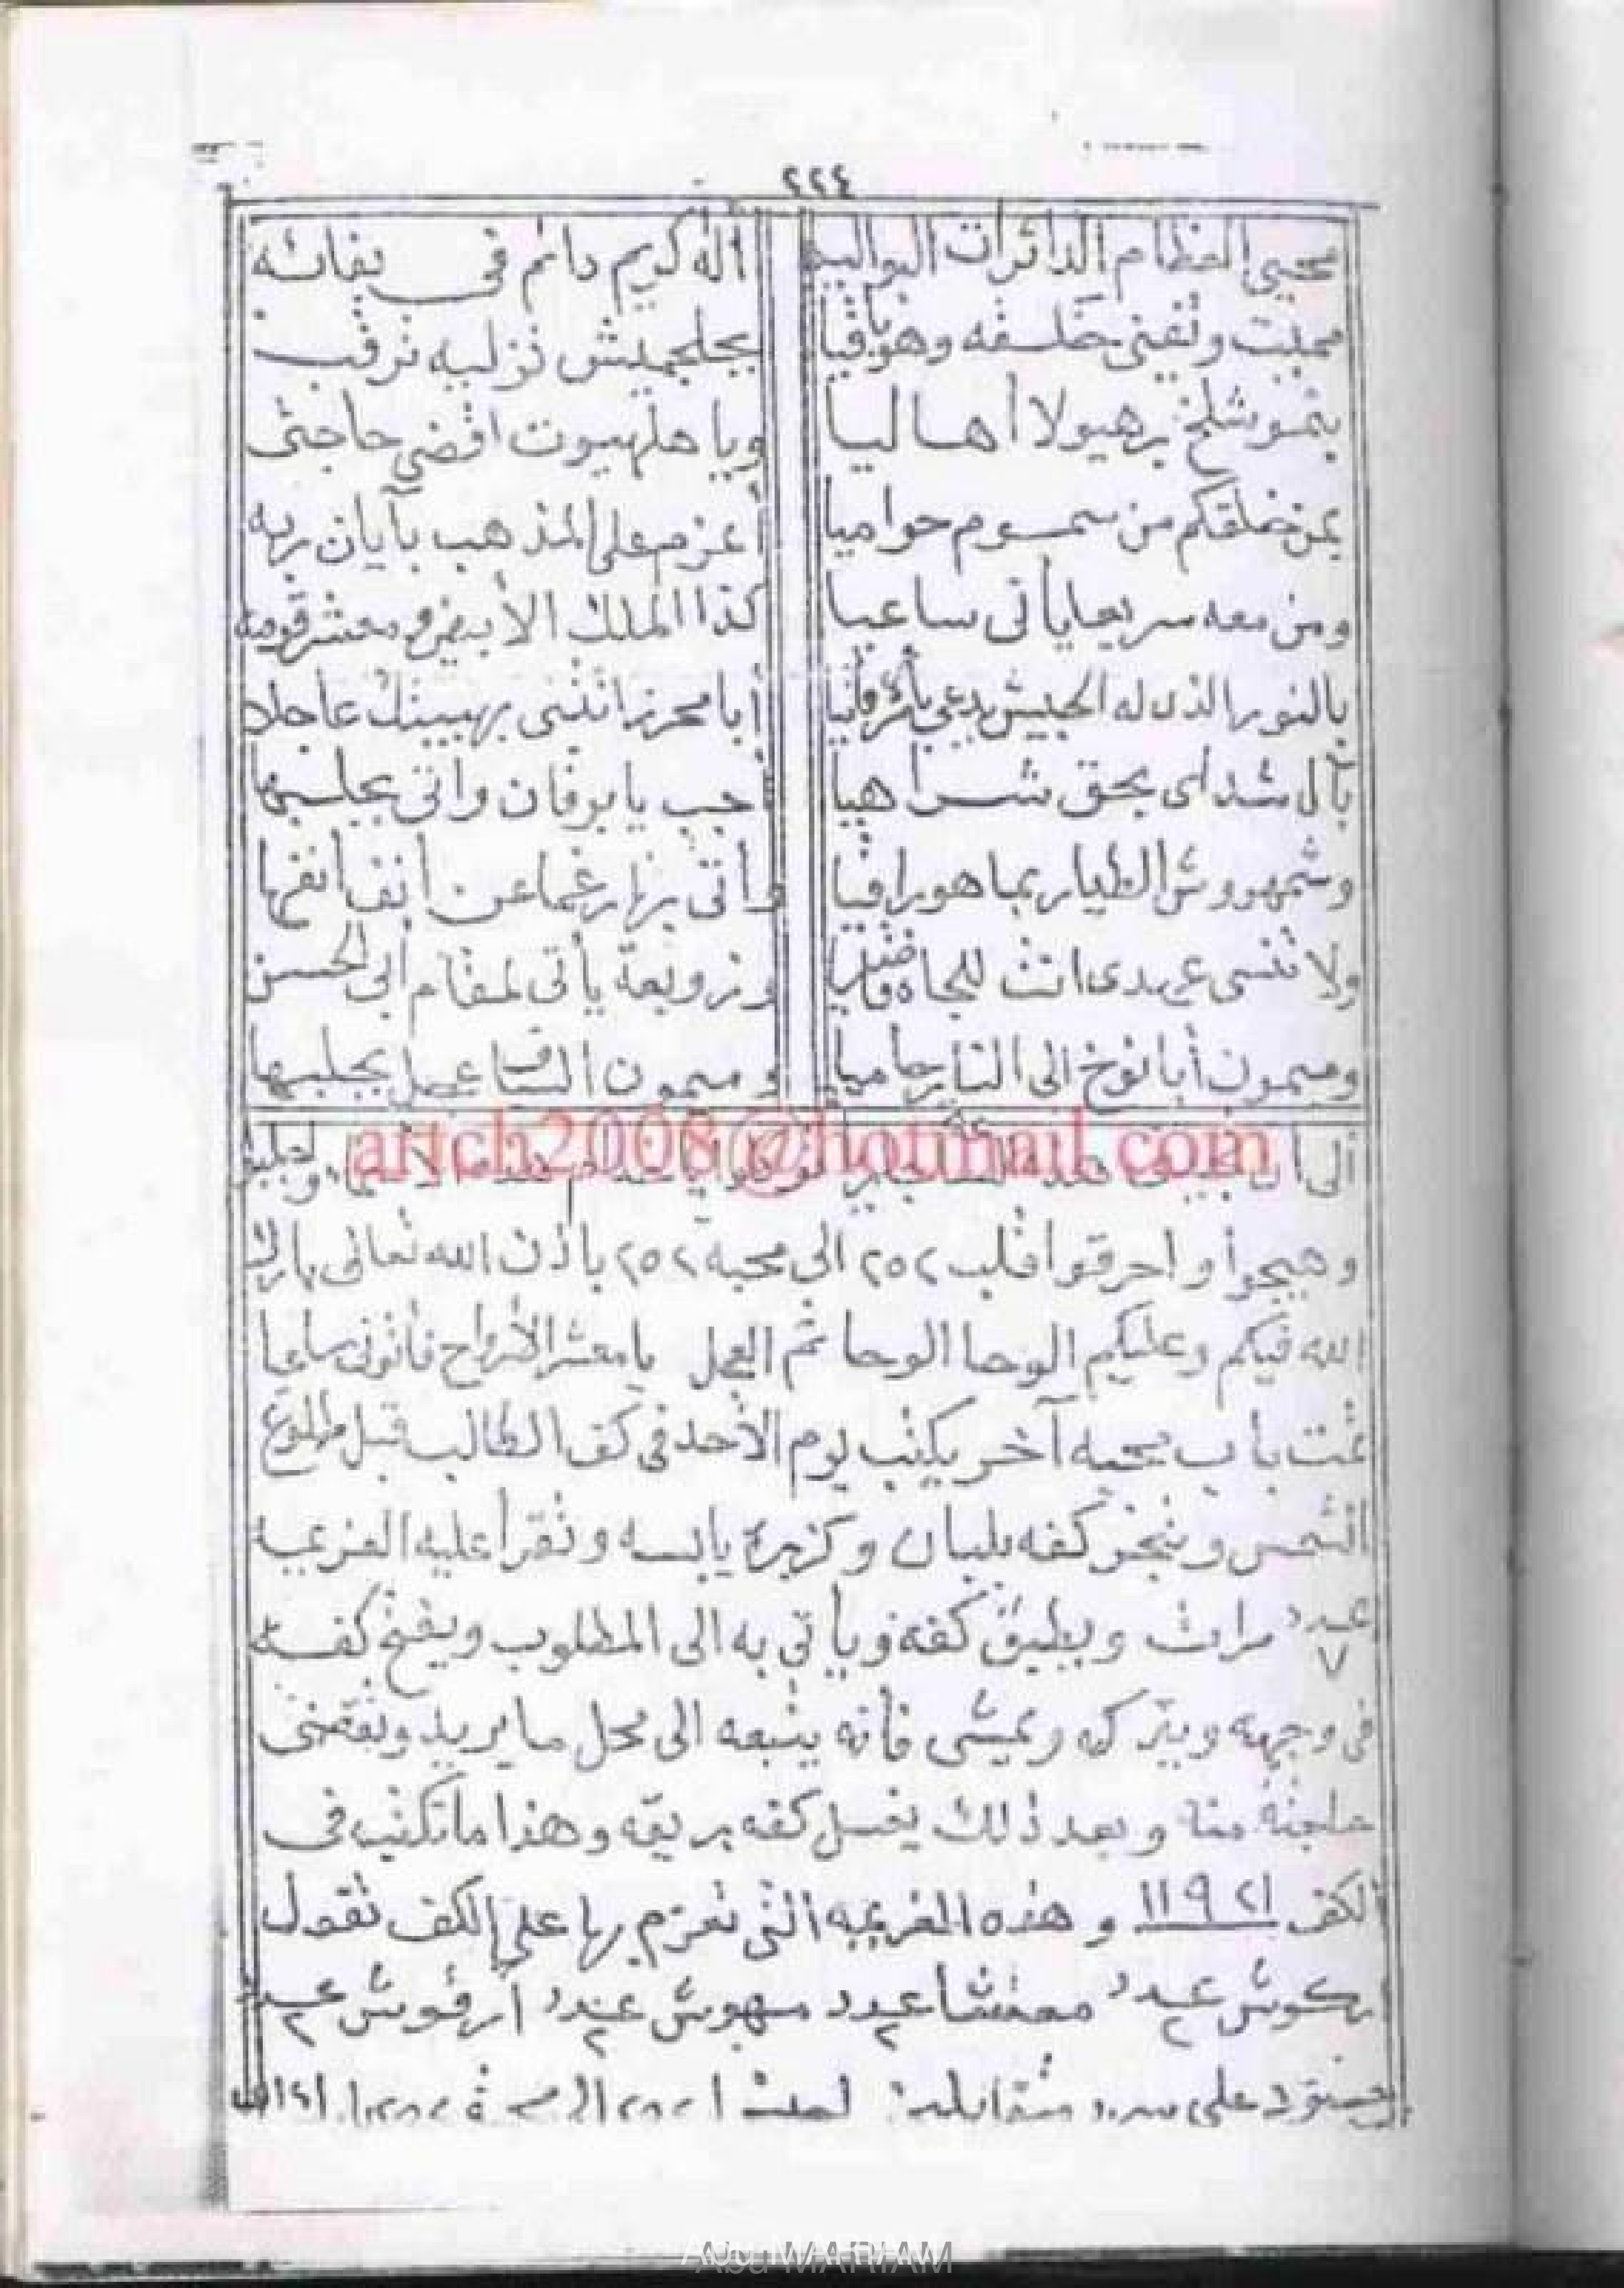 ٢٢٤
محيى العظام الداثرات البواليه اله كريم دائم فى بقائه
مميت وتفنى خلقه وهو باقيا بجلجميش نزليه نرقب
بتمو شلخ برهيولا أهاليا ويا هلهيوت اقضى حاجتى
بمن خلقكم من سموم حواميا أعزم على المذهب بآيان ربه
ومن معه سريعا يأتى ساعيا كذا الملك الأبيض ومعشر قومه
بالنور الذى له الجيش يدعى أبا محرز ائتنى بهيبتك عاجلا
بآل شداى بحق شراهيا أجب يا برقان واتى بجلبها
وشمهروش الطيار بما هو راقيا واتى بها رغما عن أنف أنفها
ولا تنسى عهدى انت للجاه وزوبعة يأتى لمقام أبى الحسن
وميمون أبا نوخ الى النار حاميا وميمون السياف عجل بجلبها
artch2008@hotmail.com
وهيجوا واحرقوا قلب ٢٥٢ الى محبه ٢٥٢ باذن الله تعالى بارك
الله فيكم وعليكم الوحا الوحا ثم العجل يا معشر الأرواح فأتونى ساعيا
تمت باب محبه آخر يكتب يوم الأحد فى كف الطالب قبل طلوع
الشمس ويبخر كفه بلبان وكزبره يابسه وتقرأ عليه العزيمه
عدد ٧ مرات ويطبق كفه ويأتى به الى المطلوب ويفتح كفه
فى وجهه ويتركه ويمشى فأنه يتبعه الى محل ما يريد ويقضى
حاجته منه وبعد ذلك يغسل كفه بريقه وهذا ما تكتب فى
الكف ١١٩٢١ وهذه العزيمه التى تعزم بها على الكف تقول
اركوش عدد ٢ معنشا عدد ٢ مهوش عدد ٢ أرقوش عدد ٢
على
Abu MARIAM